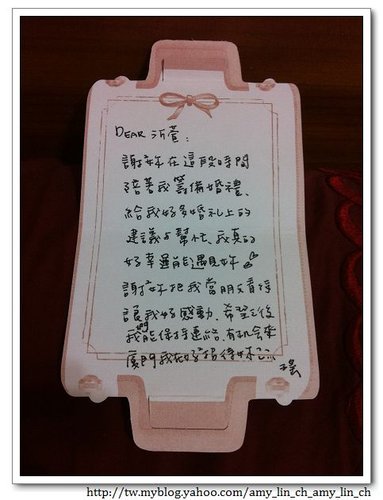 DEAR 沂萱：
謝謝妳在這段時間
陪著我籌備婚禮、
給我好多婚禮上的
建議與幫忙、我真的
好幸運能遇見妳
謝謝妳把我當朋友看待
讓我好感動、希望之後
我們能保持連絡、有機會來
廈門我在好好招待妳
瑤
http://tw.myblog.yahoo.com/amy_lin_ch_amy_lin_ch